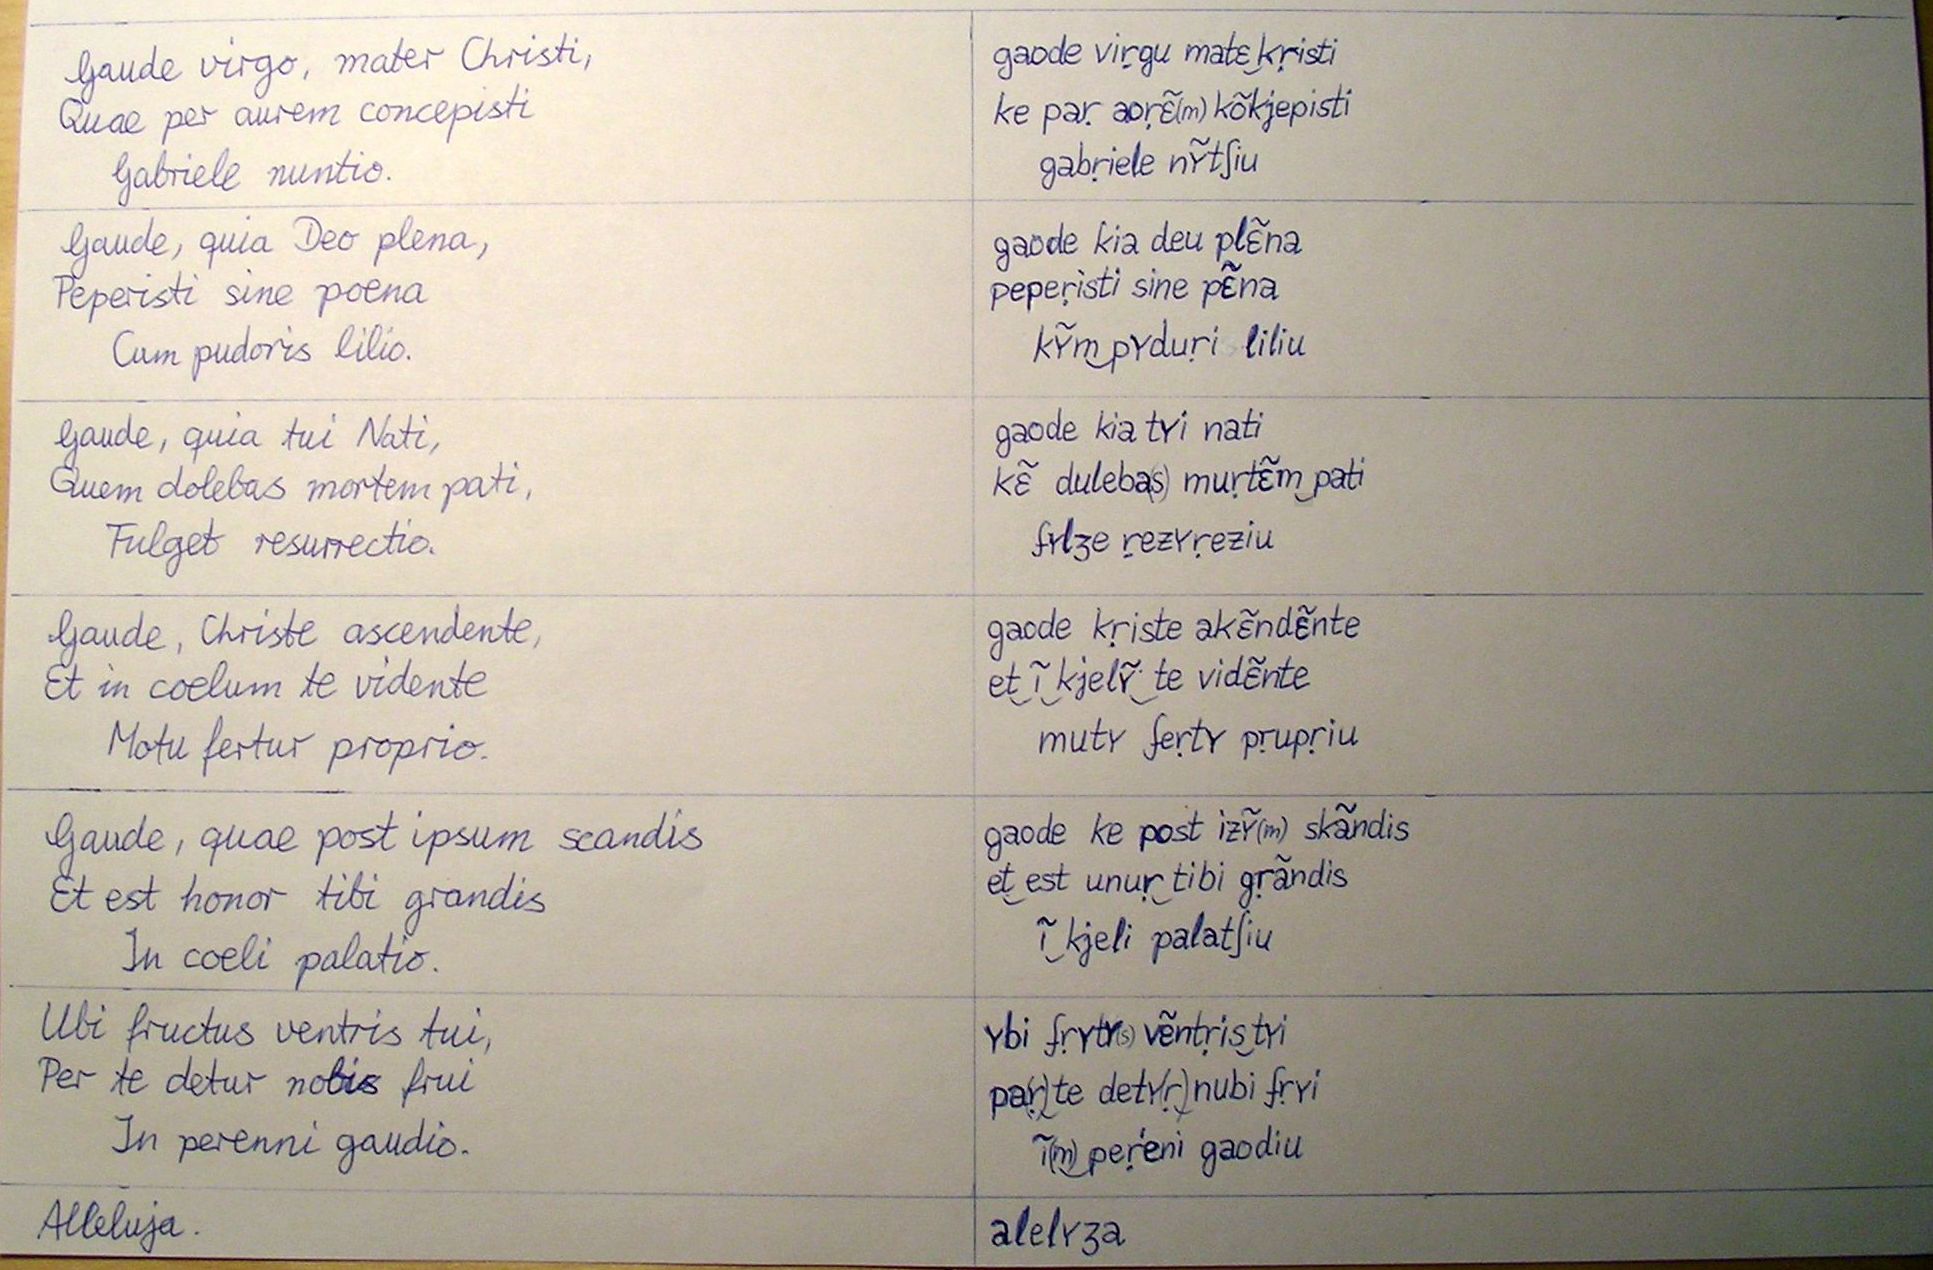 Gaude virgo, mater Christi,
Quae per aurem concepisti
Gabriele nuntio.
gaode viṛgu matɛ‿kṛisti
ke paṛ aoṛɛ̃(m) kõkjepisti
gabṛiele nʏ̃tʃiu
Gaude, quia Deo plena,
Peperisti sine poena
Cum pudoris lilio.
gaode kia deu plɛ̃na
pepeṛisti sine pɛ̃na
kʏ̃m‿pʏduṛi liliu
Gaude, quia tui Nati,
Quem dolebas mortem pati,
Fulget resurrectio.
gaode kia tʏi nati
kɛ̃ duleba(s) muṛtɛ̃m‿pati
fʏlʒe ṛezʏṛeziu
Gaude, Christe ascendente,
Et in coelum te vidente
Motu fertur proprio.
gaode kṛiste akɛ̃ndɛ̃nte
et‿ĩ‿kjelʏ̃‿te vidɛ̃nte
mutʏ feṛtʏ pṛupṛiu
Gaude, quae post ipsum scandis
Et est honor tibi grandis
In coeli palatio.
gaode ke post izʏ̃(m) skãndis
et‿est unuṛ‿tibi gṛãndis
ĩ‿kjeli palatʃiu
Ubi fructus ventris tui,
Per te detur nobis frui
In perenni gaudio.
ʏbi fṛʏtʏ(s) vẽntṛis‿tʏi
pa(ṛ)‿te detʏ(ṛ)‿nubi fṛʏi
ĩ(m)‿peṛeni gaodiu
Alleluja.
alelʏʒa